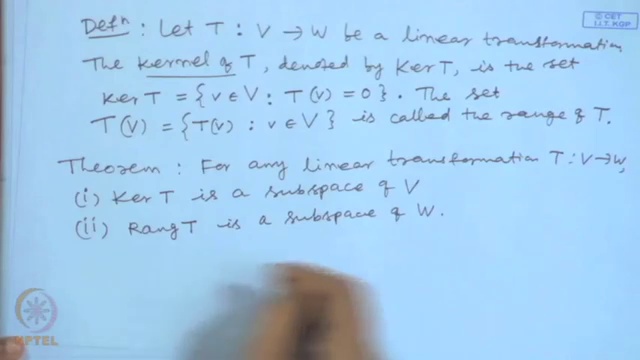 © CET
I.I.T. KGP
Defⁿ : Let T : V → W be a linear transformation
The Kernel of T, denoted by Ker T, is the set
Ker T = {v ∈ V : T(v) = 0}. The set
T(V) = {T(v) : v ∈ V} is called the range of T.
Theorem : For any linear transformation T : V → W,
(i) Ker T is a subspace of V
(ii) Rang T is a subspace of W.
NPTEL